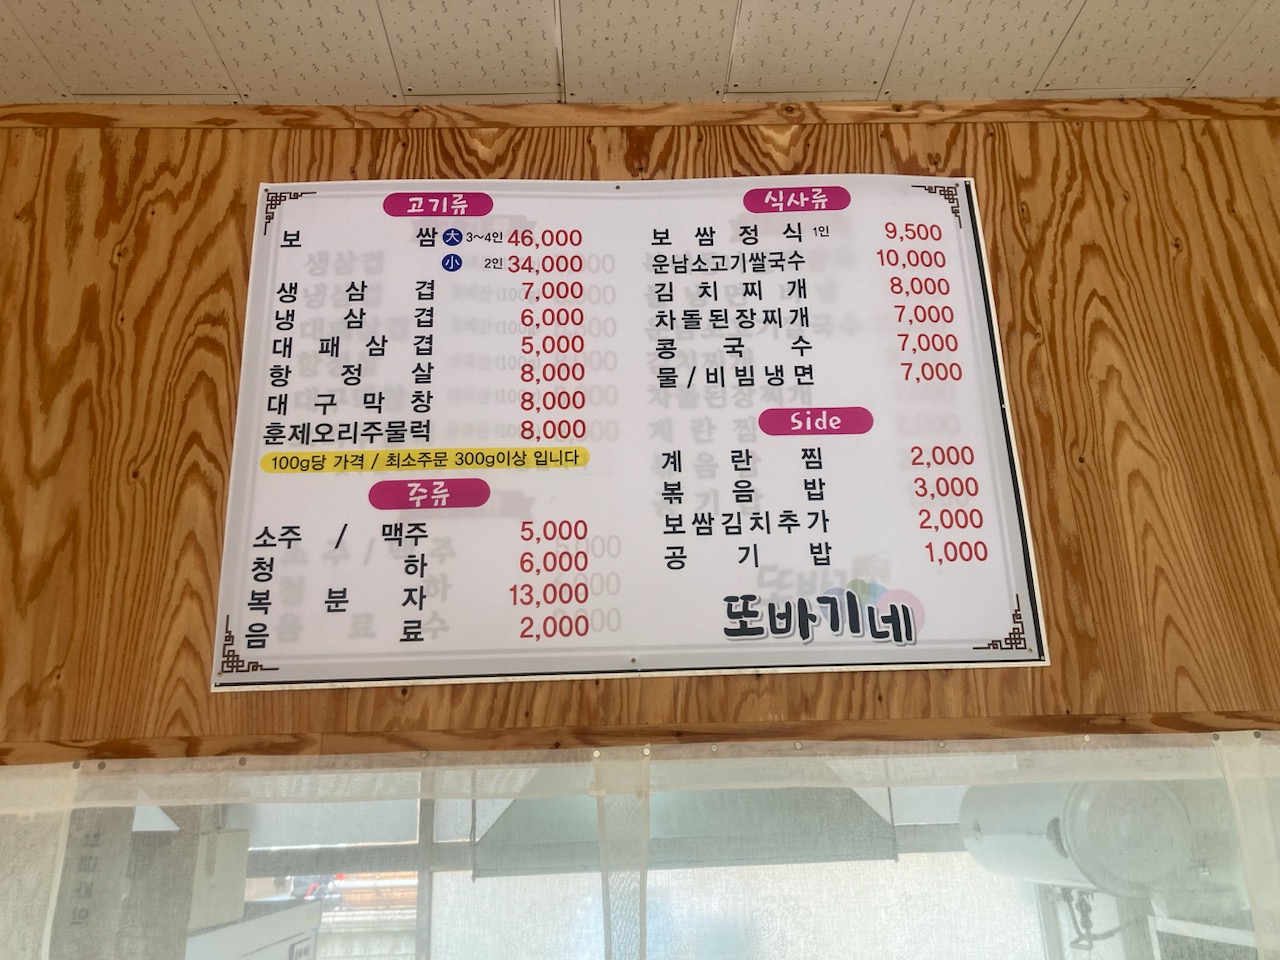 고기류
보쌈 大 3~4인 46,000
小 2인 34,000
생삼겹 7,000
냉삼겹 6,000
대패삼겹 5,000
항정살 8,000
대구막창 8,000
훈제오리주물럭 8,000
100g당 가격 / 최소주문 300g이상 입니다
주류
소주 / 맥주 5,000
청하 6,000
복분자 13,000
음료 2,000
식사류
보쌈정식 1인 9,500
운남소고기쌀국수 10,000
김치찌개 8,000
차돌된장찌개 7,000
콩국수 7,000
물/비빔냉면 7,000
Side
계란찜 2,000
볶음밥 3,000
보쌈김치추가 2,000
공기밥 1,000
또바기네